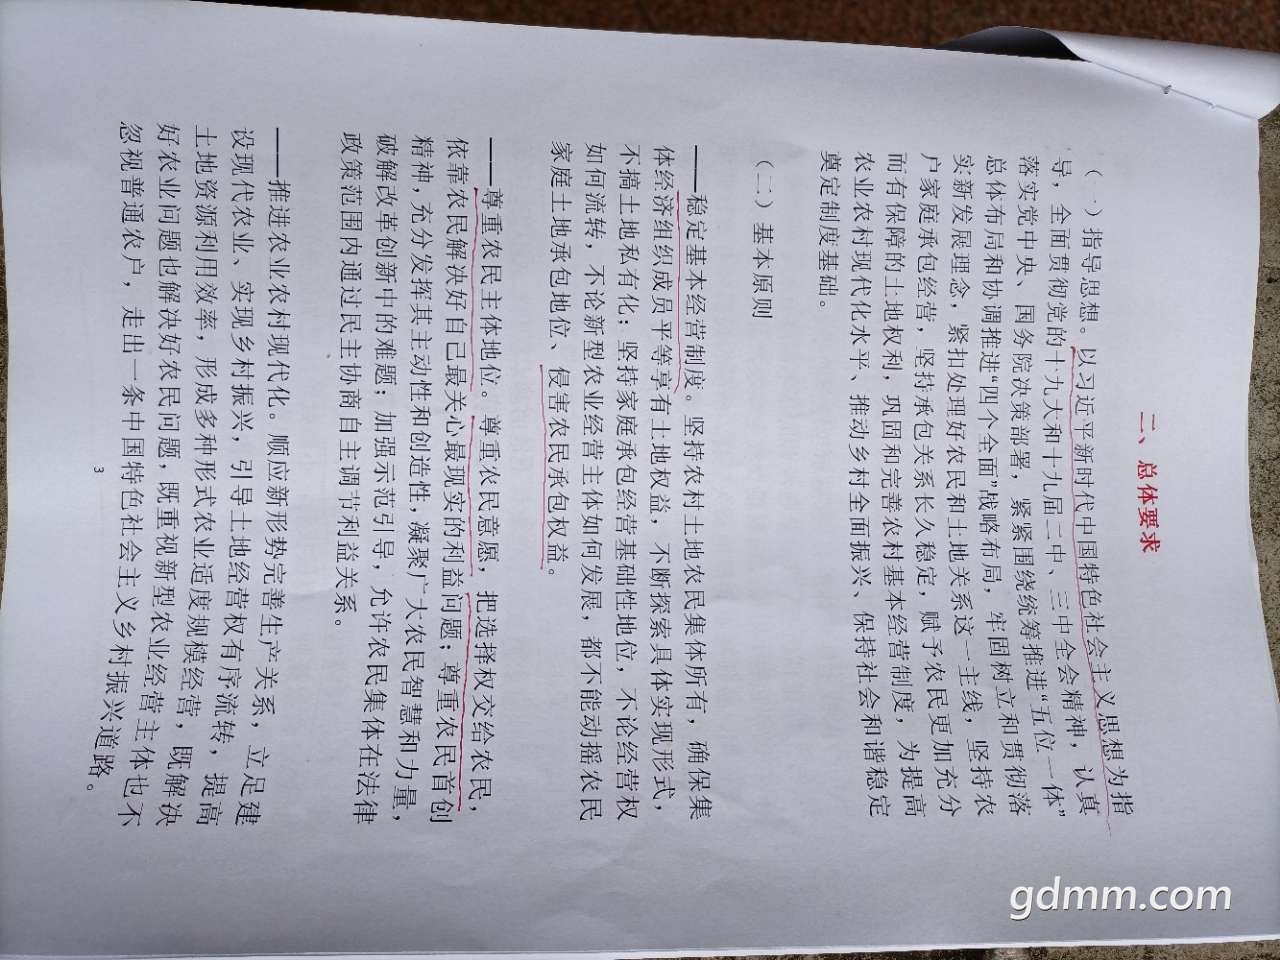 二、总体要求
（一）指导思想。以习近平新时代中国特色社会主义思想为指
导，全面贯彻党的十九大和十九届二中、三中全会精神，认真
落实党中央、国务院决策部署，紧紧围绕统筹推进“五位一体”
总体布局和协调推进“四个全面”战略布局，牢固树立和贯彻落
实新发展理念，紧扣处理好农民和土地关系这一主线，坚持农
户家庭承包经营，坚持承包关系长久稳定，赋予农民更加充分
而有保障的土地权利，巩固和完善农村基本经营制度，为提高
农业农村现代化水平、推动乡村全面振兴、保持社会和谐稳定
奠定制度基础。
（二）基本原则
——稳定基本经营制度。坚持农村土地农民集体所有，确保集
体经济组织成员平等享有土地权益，不断探索具体实现形式，
不搞土地私有化；坚持家庭承包经营基础性地位，不论经营权
如何流转，不论新型农业经营主体如何发展，都不能动摇农民
家庭土地承包地位、侵害农民承包权益。
——尊重农民主体地位。尊重农民意愿，把选择权交给农民，
依靠农民解决好自己最关心最现实的利益问题；尊重农民首创
精神，充分发挥其主动性和创造性，凝聚广大农民智慧和力量，
破解改革创新中的难题；加强示范引导，允许农民集体在法律
政策范围内通过民主协商自主调节利益关系。
——推进农业农村现代化。顺应新形势完善生产关系，立足建
设现代农业、实现乡村振兴，引导土地经营权有序流转，提高
土地资源利用效率，形成多种形式农业适度规模经营，既解决
好农业问题也解决好农民问题，既重视新型农业经营主体也不
忽视普通农户，走出一条中国特色社会主义乡村振兴道路。
3
gdmm.com